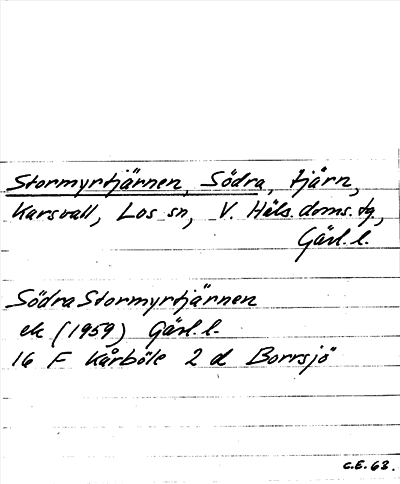 Stormyrtjärnen, Södra, tjärn,
Karsvall, Los sn, V. Häls. doms. tg,
Gävl. l.
Södra Stormyrtjärnen
ek (1959) Gävl. l.
16 F Kårböle 2 d Borrsjö
C.E. 63.